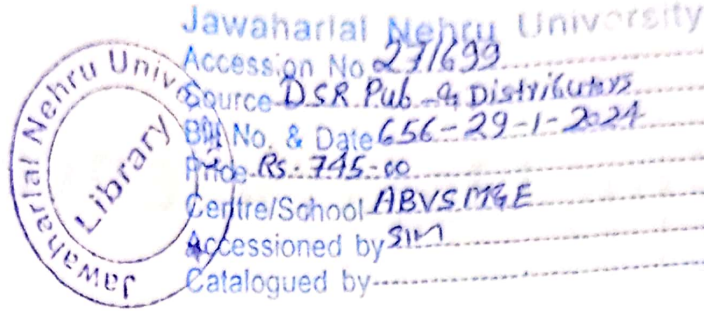 Jawaharlal Nehru University
Accession No 271699
Source DSR Pub & Distributors
Bill No. & Date 656-29-1-2024
Price Rs. 745-00
Centre/School ABVSM&E
Accessioned by SIM
Catalogued by
Jawaharlal Nehru Univ
Library